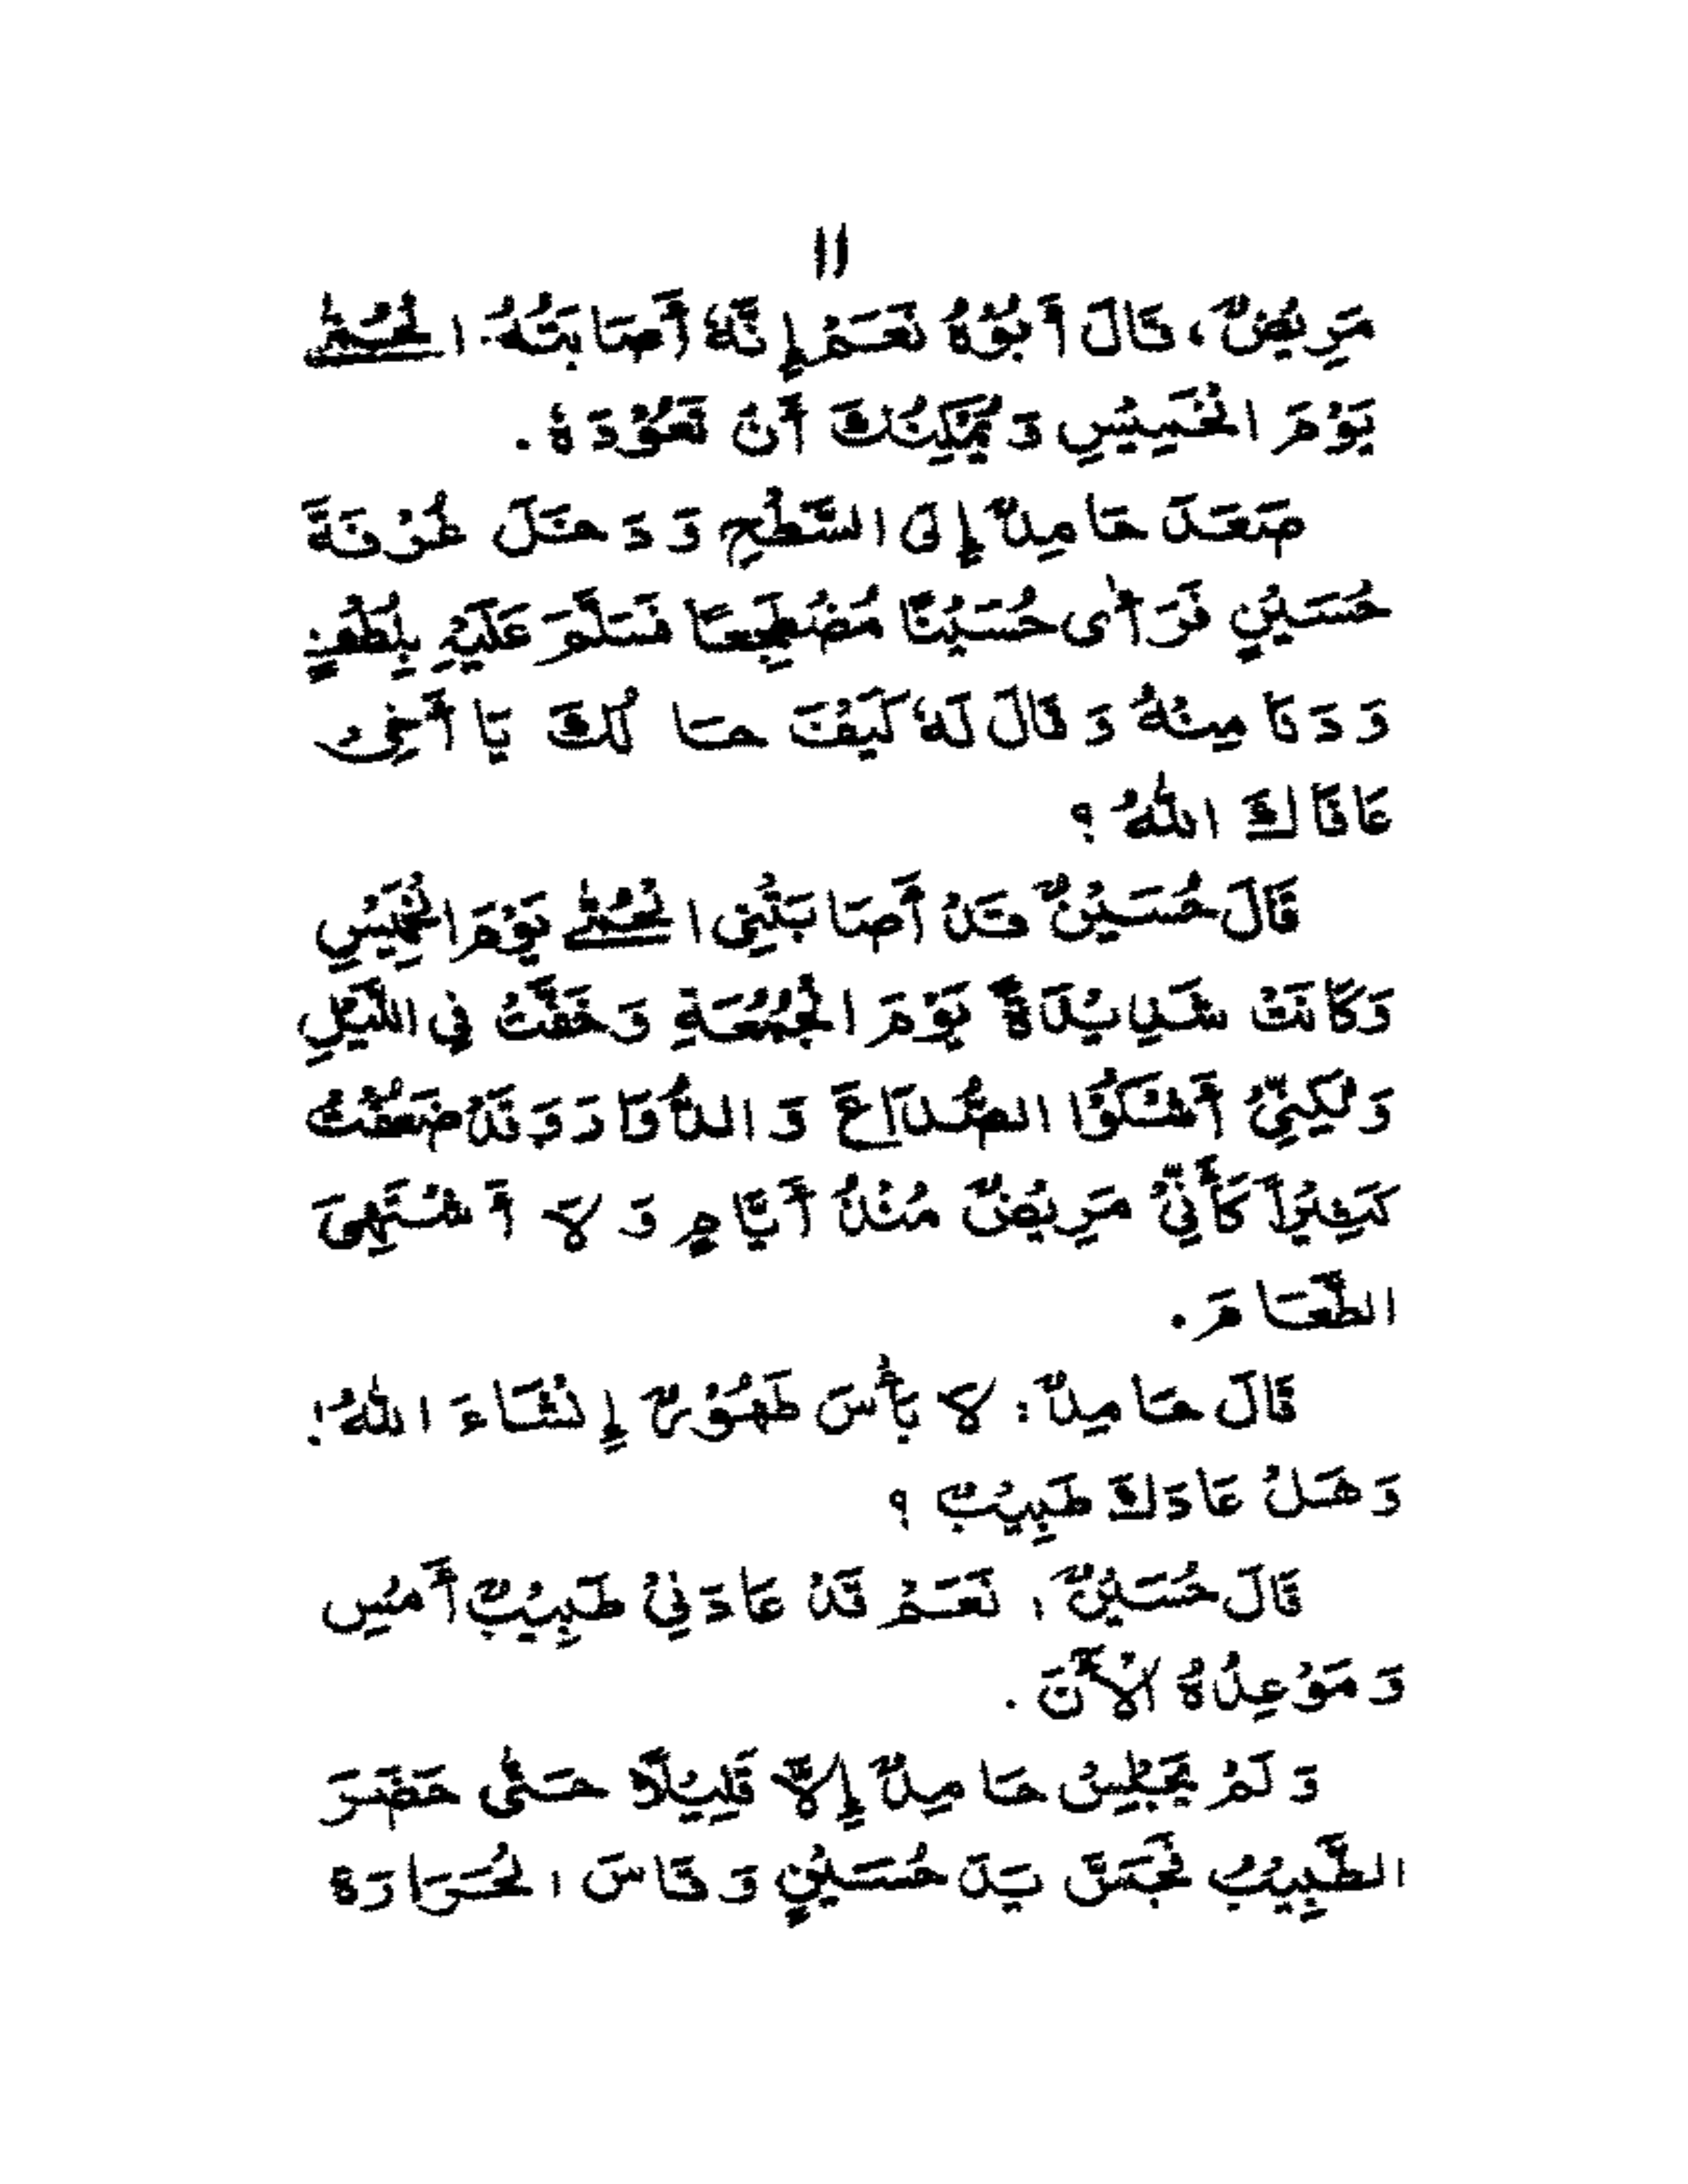 ١١
مَرِيْضٌ، قَالَ أَبُوْهُ نَعَمْ إِنَّهٗ أَصَابَتْهُ الْحُمّٰى
يَوْمَ الْخَمِيْسِ وَيُمْكِنُكَ أَنْ تَعُوْدَهٗ.
صَعَدَ حَامِدٌ إِلَى السَّطْحِ وَدَخَلَ غُرْفَةَ
حُسَيْنٍ فَرَأٰى حُسَيْنًا مُضْطَجِعًا فَسَلَّمَ عَلَيْهِ بِلُطْفٍ
وَدَنَا مِنْهُ وَقَالَ لَهٗ كَيْفَ حَالُكَ يَا أَخِيْ
عَافَاكَ اللّٰهُ؟
قَالَ حُسَيْنٌ قَدْ أَصَابَتْنِى الْحُمّٰى يَوْمَ الْخَمِيْسِ
وَكَانَتْ شَدِيْدَةً يَوْمَ الْجُمُعَةِ وَخَفَّتْ فِي اللَّيْلِ
وَلٰكِنِّيْ أَشْكُوْا الصُّدَاعَ وَالدُّوَارَ وَقَدْ ضَعُفْتُ
كَثِيْراً كَأَنِّيْ مَرِيْضٌ مُنْذُ أَيَّامٍ وَلَا أَشْتَهِىَ
الطَّعَامَ.
قَالَ حَامِدٌ: لَا بَأْسَ طَهُوْرٌ إِنْشَاءَ اللّٰهُ!
وَهَلْ عَادَكَ طَبِيْبٌ؟
قَالَ حُسَيْنٌ، نَعَمْ قَدْ عَادَنِيْ طَبِيْبٌ أَمْسِ
وَمَوْعِدُهُ الْأَنَ.
وَلَمْ يَجْلِسْ حَامِدٌ إِلَّا قَلِيْلًا حَتّٰى حَضَرَ
الطَّبِيْبُ فَجَسَّ يَدَ حُسَيْنٍ وَقَاسَ الْحَرَارَةَ